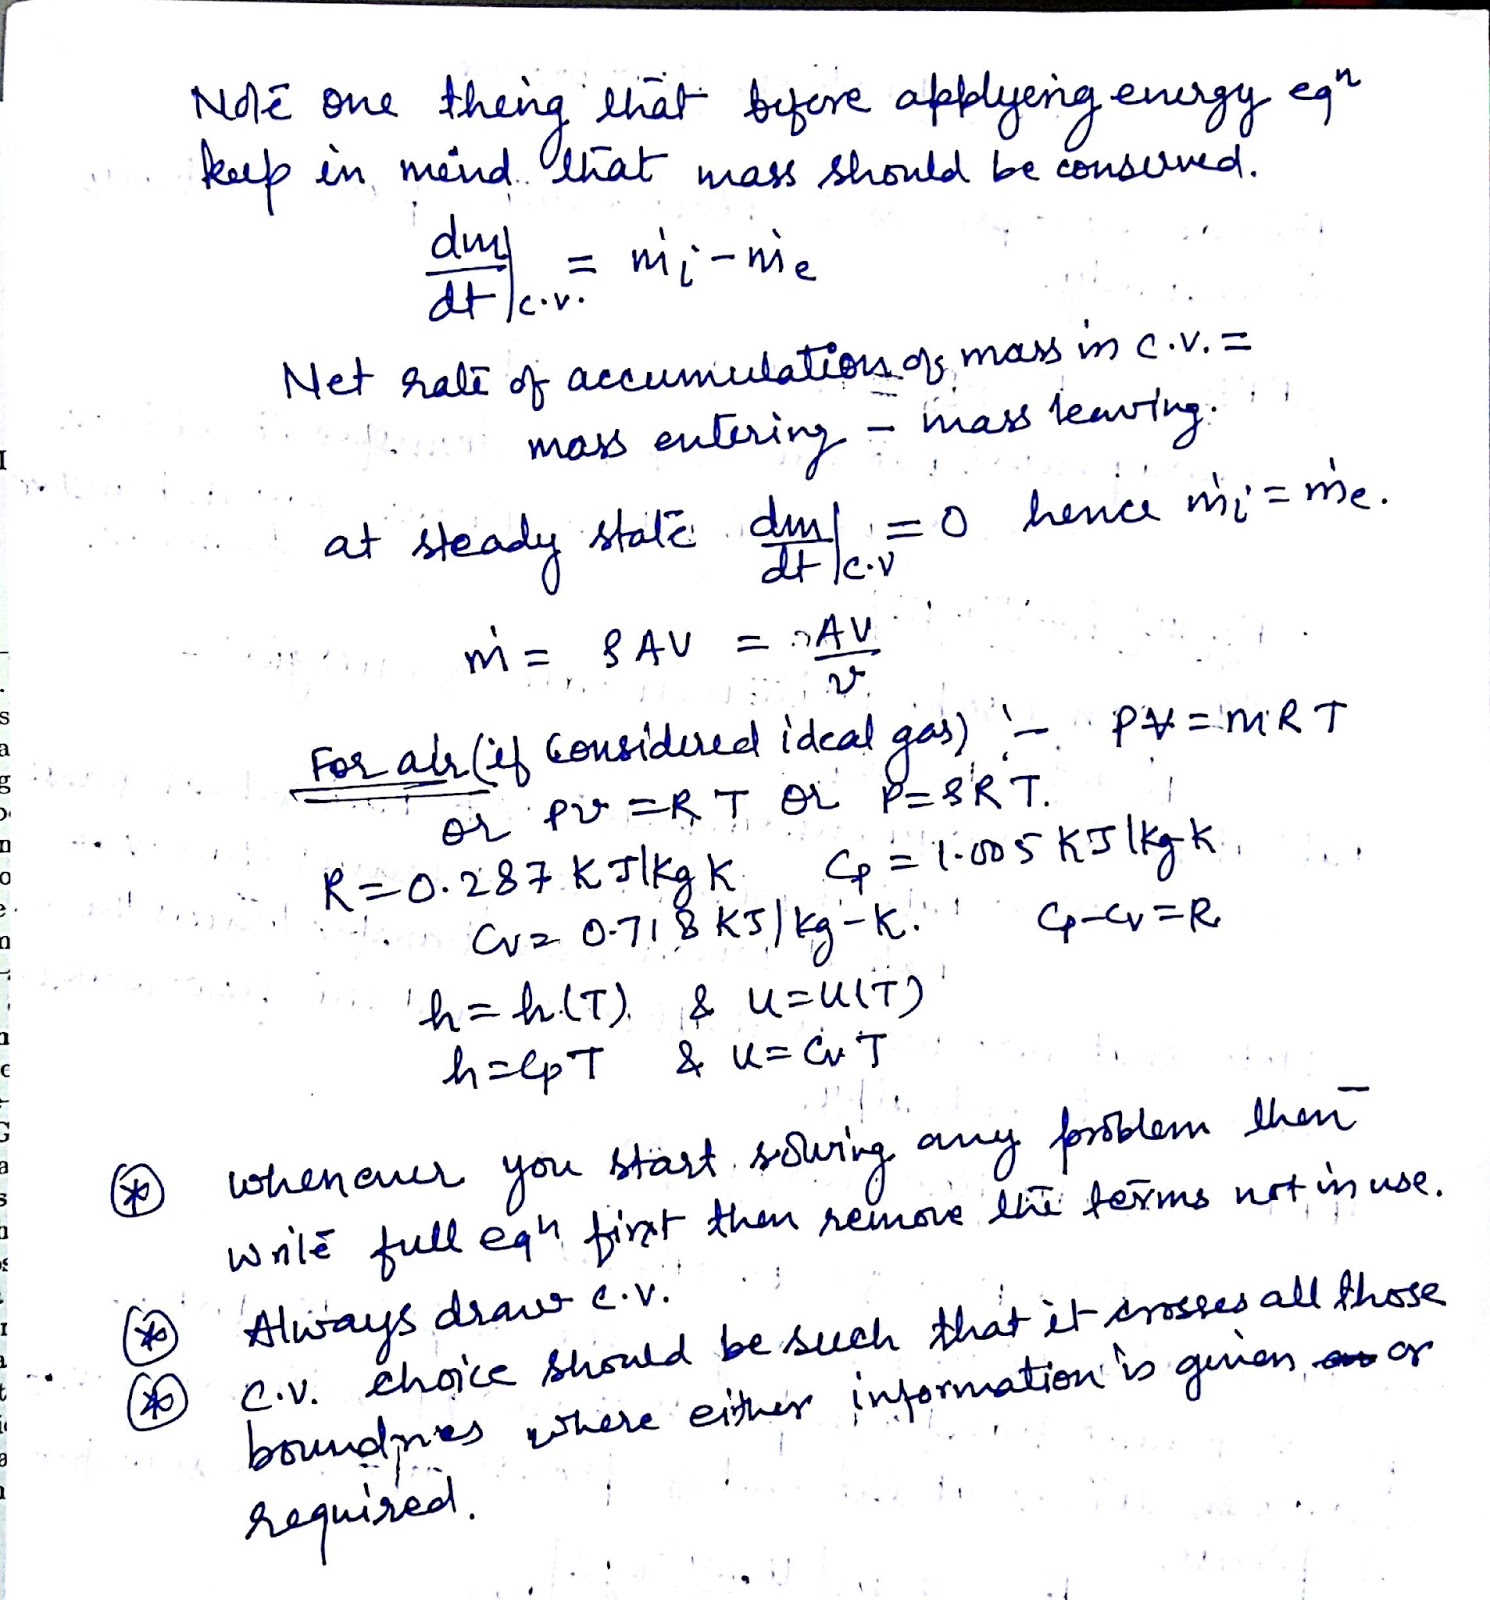 Note one theing that before applyeing energy eqⁿ
keep in meind that mass should be conserved.
dm/dt|c.v. = ṁi - ṁe
Net rate of accumulation of mass in c.v. =
mass entering - mass leaving.
at steady state dm/dt|c.v = 0 hence ṁi = ṁe.
ṁ = ρAV = AV/v
For air (if considered ideal gas) :- PV̶ = mRT
or Pv = RT or P = ρRT.
R = 0.287 KJ/kg K Cp = 1.005 KJ/kg K
Cv = 0.718 KJ/kg-K. Cp-Cv=R
h = h(T) & u = u(T)
h = CpT & u = CvT
⊛ whenever you start solving any problem then
write full eqⁿ first then remove the terms not in use.
⊛ Always draw c.v.
⊛ C.V. choice should be such that it crosses all those
boundries where either information is given or
required.
I
s
a
g
n
o
e
n
G
a
s
I
a
t